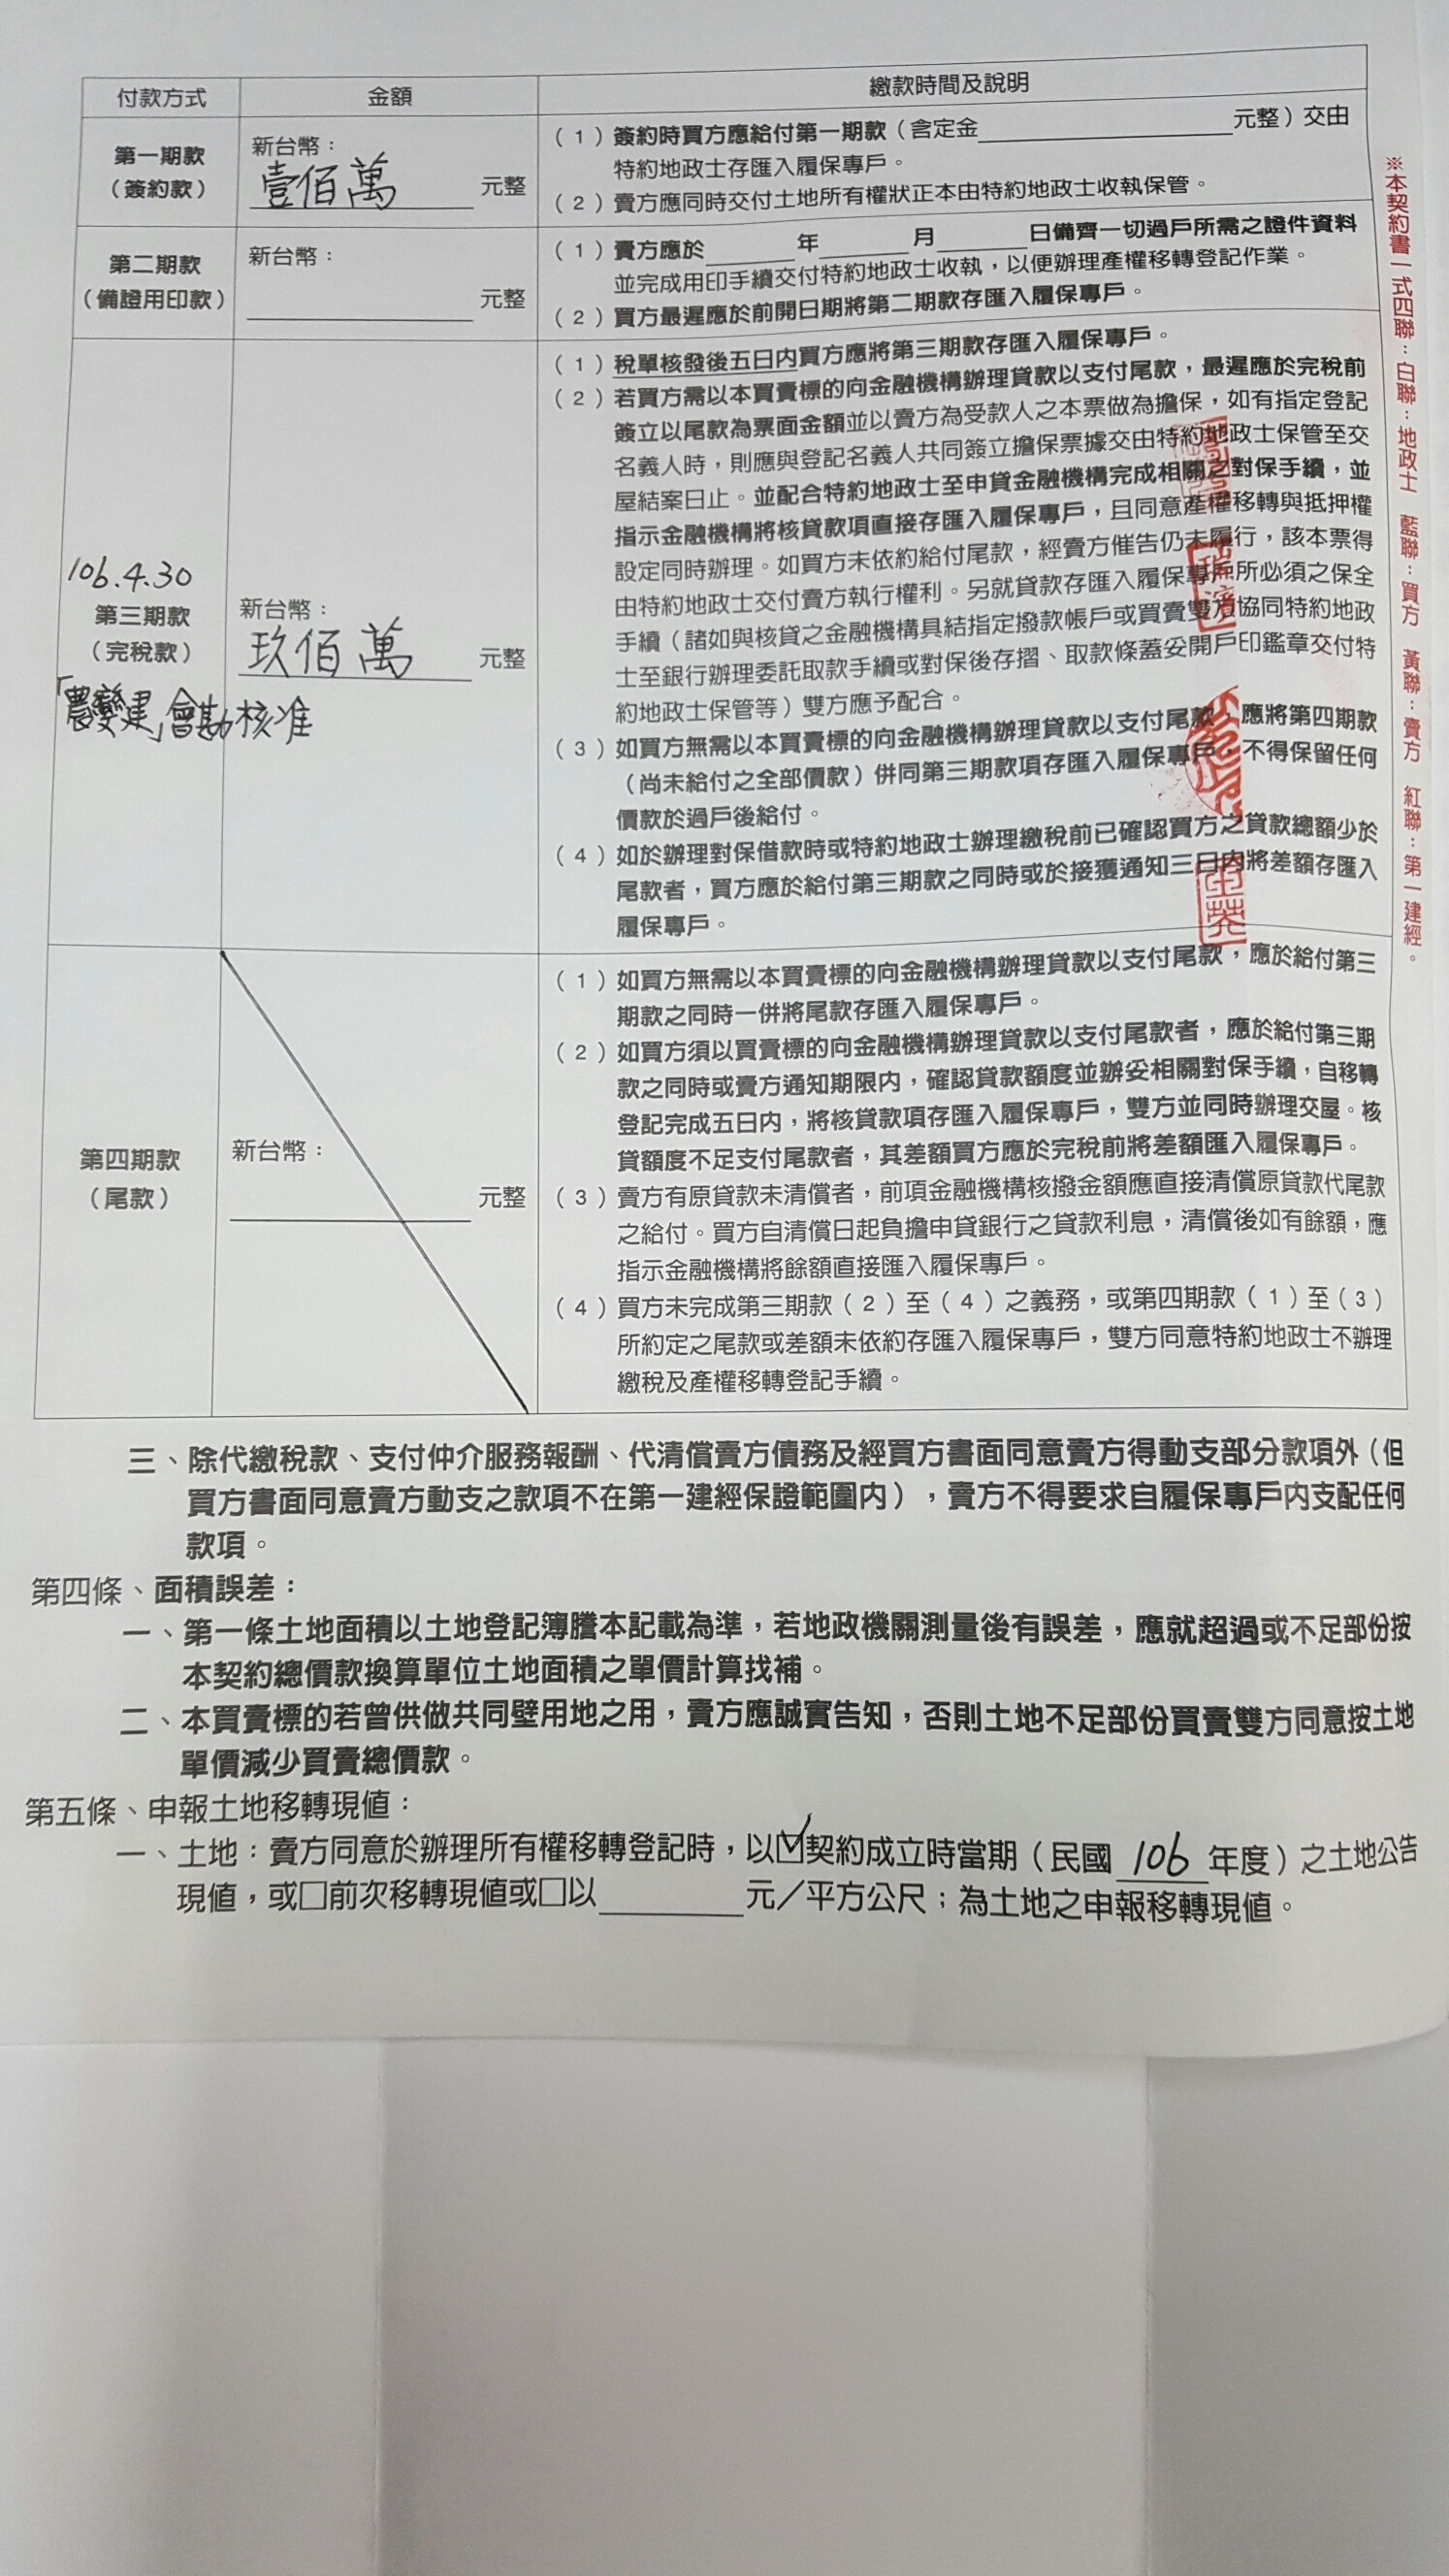 付款方式 金額 繳款時間及說明
第一期款
（簽約款）
新台幣：
壹佰萬 元整
（1）簽約時買方應給付第一期款（含定金 元整）交由
特約地政士存匯入履保專戶。
（2）賣方應同時交付土地所有權狀正本由特約地政士收執保管。
第二期款
（備證用印款）
新台幣：
元整
（1）賣方應於 年 月 日備齊一切過戶所需之證件資料
並完成用印手續交付特約地政士收執，以便辦理產權移轉登記作業。
（2）買方最遲應於前開日期將第二期款存匯入履保專戶。
106.4.30
第三期款
（完稅款）
「農變建」會勘核准
新台幣：
玖佰萬 元整
（1）稅單核發後五日內買方應將第三期款存匯入履保專戶。
（2）若買方需以本買賣標的向金融機構辦理貸款以支付尾款，最遲應於完稅前
簽立以尾款為票面金額並以賣方為受款人之本票做為擔保，如有指定登記
名義人時，則應與登記名義人共同簽立擔保票據交由特約地政士保管至交
屋結案日止。並配合特約地政士至申貸金融機構完成相關之對保手續，並
指示金融機構將核貸款項直接存匯入履保專戶，且同意產權移轉與抵押權
設定同時辦理。如買方未依約給付尾款，經賣方催告仍未履行，該本票得
由特約地政士交付賣方執行權利。另就貸款存匯入履保專戶所必須之保全
手續（諸如與核貸之金融機構具結指定撥款帳戶或買賣雙方協同特約地政
士至銀行辦理委託取款手續或對保後存摺、取款條蓋妥開戶印鑑章交付特
約地政士保管等）雙方應予配合。
（3）如買方無需以本買賣標的向金融機構辦理貸款以支付尾款，應將第四期款
（尚未給付之全部價款）併同第三期款項存匯入履保專戶，不得保留任何
價款於過戶後給付。
（4）如於辦理對保借款時或特約地政士辦理繳稅前已確認買方之貸款總額少於
尾款者，買方應於給付第三期款之同時或於接獲通知三日內將差額存匯入
履保專戶。
第四期款
（尾款）
新台幣：
元整
（1）如買方無需以本買賣標的向金融機構辦理貸款以支付尾款，應於給付第三
期款之同時一併將尾款存匯入履保專戶。
（2）如買方須以買賣標的向金融機構辦理貸款以支付尾款者，應於給付第三期
款之同時或賣方通知期限內，確認貸款額度並辦妥相關對保手續，自移轉
登記完成五日內，將核貸款項存匯入履保專戶，雙方並同時辦理交屋。核
貸額度不足支付尾款者，其差額買方應於完稅前將差額匯入履保專戶。
（3）賣方有原貸款未清償者，前項金融機構核撥金額應直接清償原貸款代尾款
之給付。買方自清償日起負擔申貸銀行之貸款利息，清償後如有餘額，應
指示金融機構將餘額直接匯入履保專戶。
（4）買方未完成第三期款（2）至（4）之義務，或第四期款（1）至（3）
所約定之尾款或差額未依約存匯入履保專戶，雙方同意特約地政士不辦理
繳稅及產權移轉登記手續。
三、除代繳稅款、支付仲介服務報酬、代清償賣方債務及經買方書面同意賣方得動支部分款項外（但
買方書面同意賣方動支之款項不在第一建經保證範圍內），賣方不得要求自履保專戶內支配任何
款項。
第四條、面積誤差：
一、第一條土地面積以土地登記簿謄本記載為準，若地政機關測量後有誤差，應就超過或不足部份按
本契約總價款換算單位土地面積之單價計算找補。
二、本買賣標的若曾供做共同壁用地之用，賣方應誠實告知，否則土地不足部份買賣雙方同意按土地
單價減少買賣總價款。
第五條、申報土地移轉現值：
一、土地：賣方同意於辦理所有權移轉登記時，以☑契約成立時當期（民國 106 年度）之土地公告
現值，或□前次移轉現值或□以 元／平方公尺；為土地之申報移轉現值。
※本契約書一式四聯：白聯：地政士 藍聯：買方 黃聯：賣方 紅聯：第一建經。